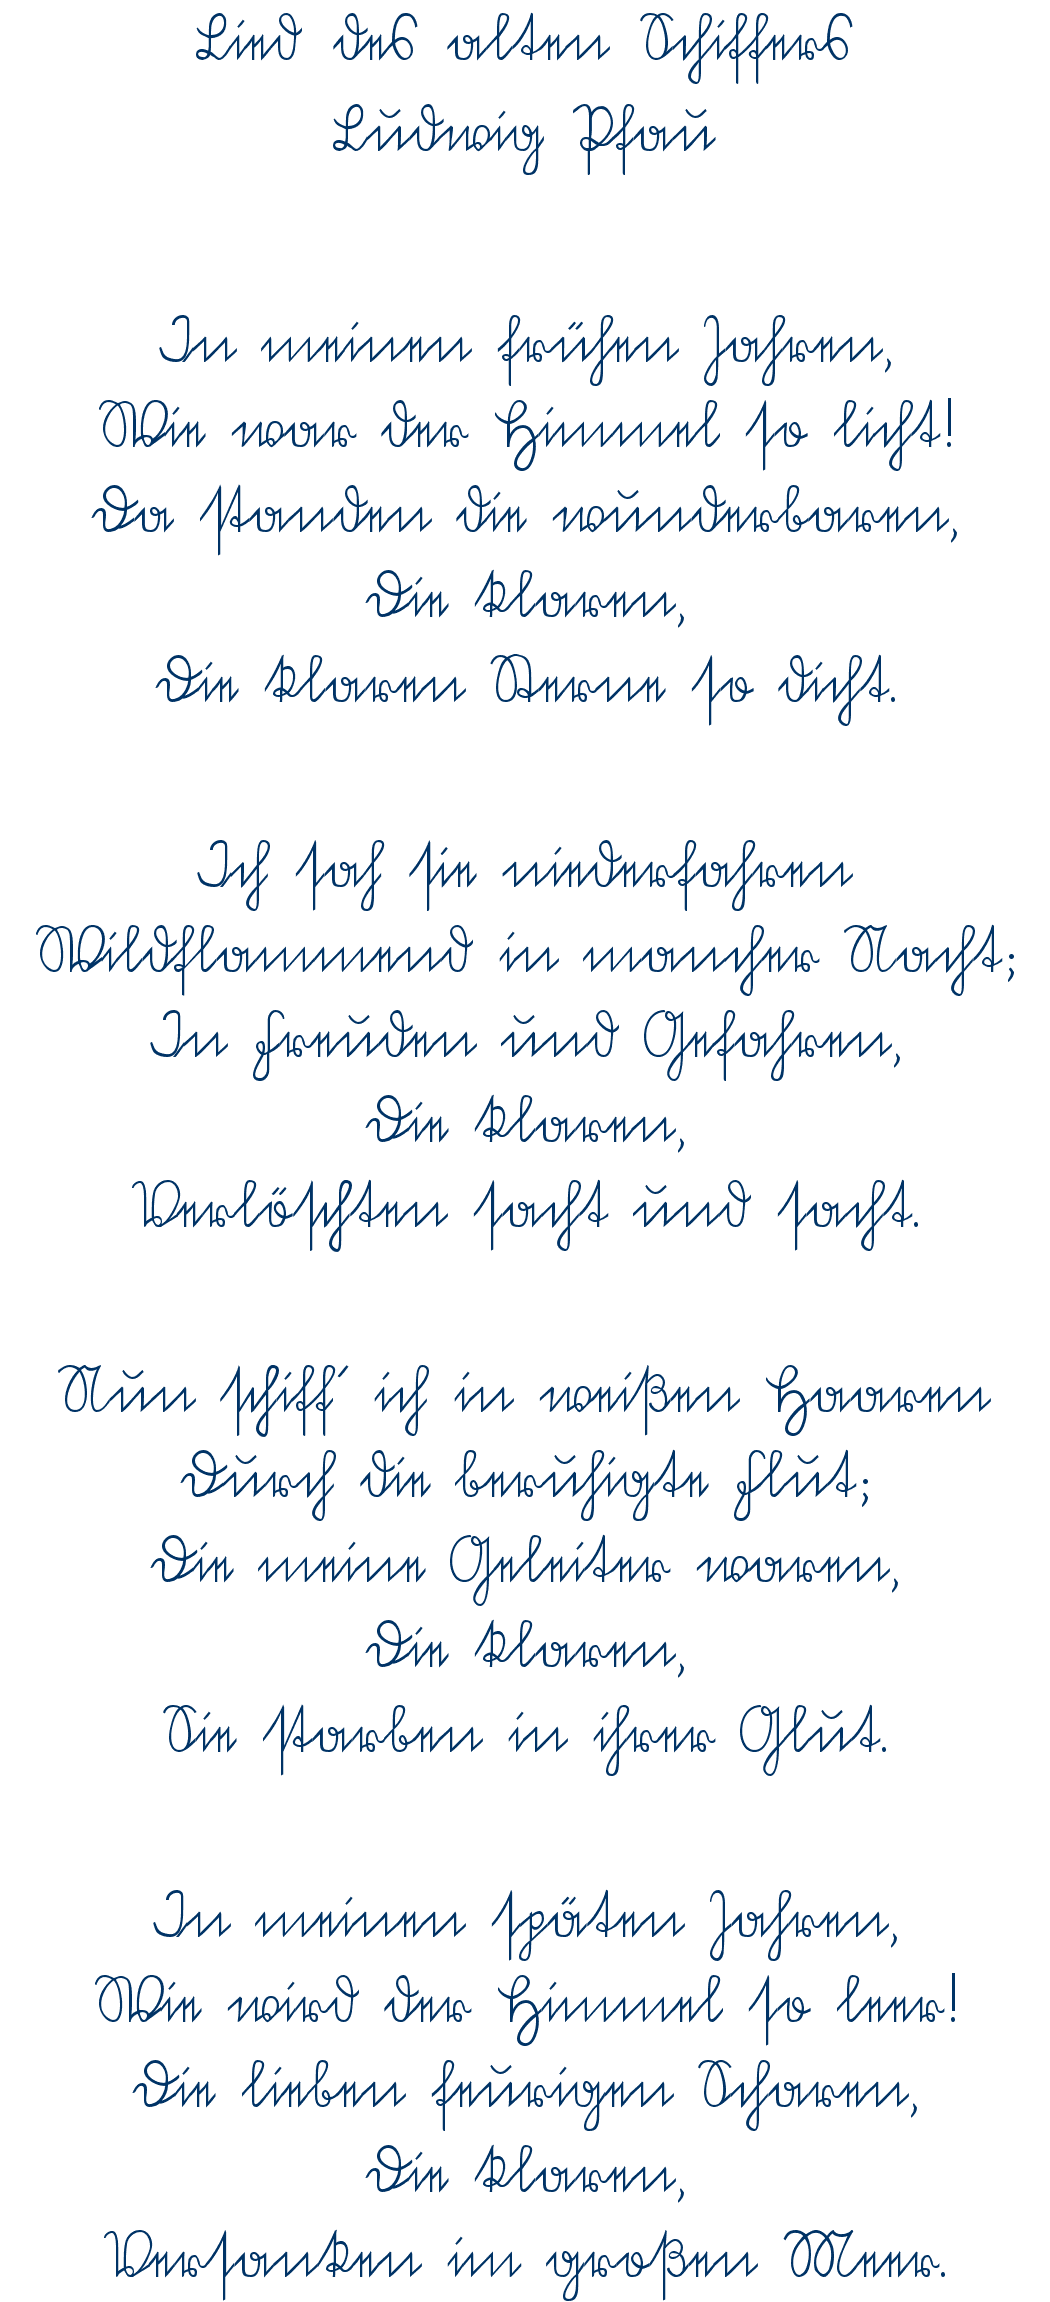 Lied des alten Schiffers
Ludwig Pfau
In meinen frühen Jahren,
Wie war der Himmel so licht!
Da standen die wunderbaren,
Die klaren,
Die klaren Sterne so dicht.
Ich sah sie niederfahren
Wildflammend in mancher Nacht;
In Freuden und Gefahren,
Die klaren,
Verlöschten sacht und sacht.
Nun schiff´ ich in weißen Haaren
Durch die beruhigte Flut;
Die meine Geleiter waren,
Die klaren,
Sie starben in ihrer Glut.
In meinen späten Jahren,
Wie wird der Himmel so leer!
Die lieben feurigen Scharen,
Die klaren,
Versanken im großen Meer.